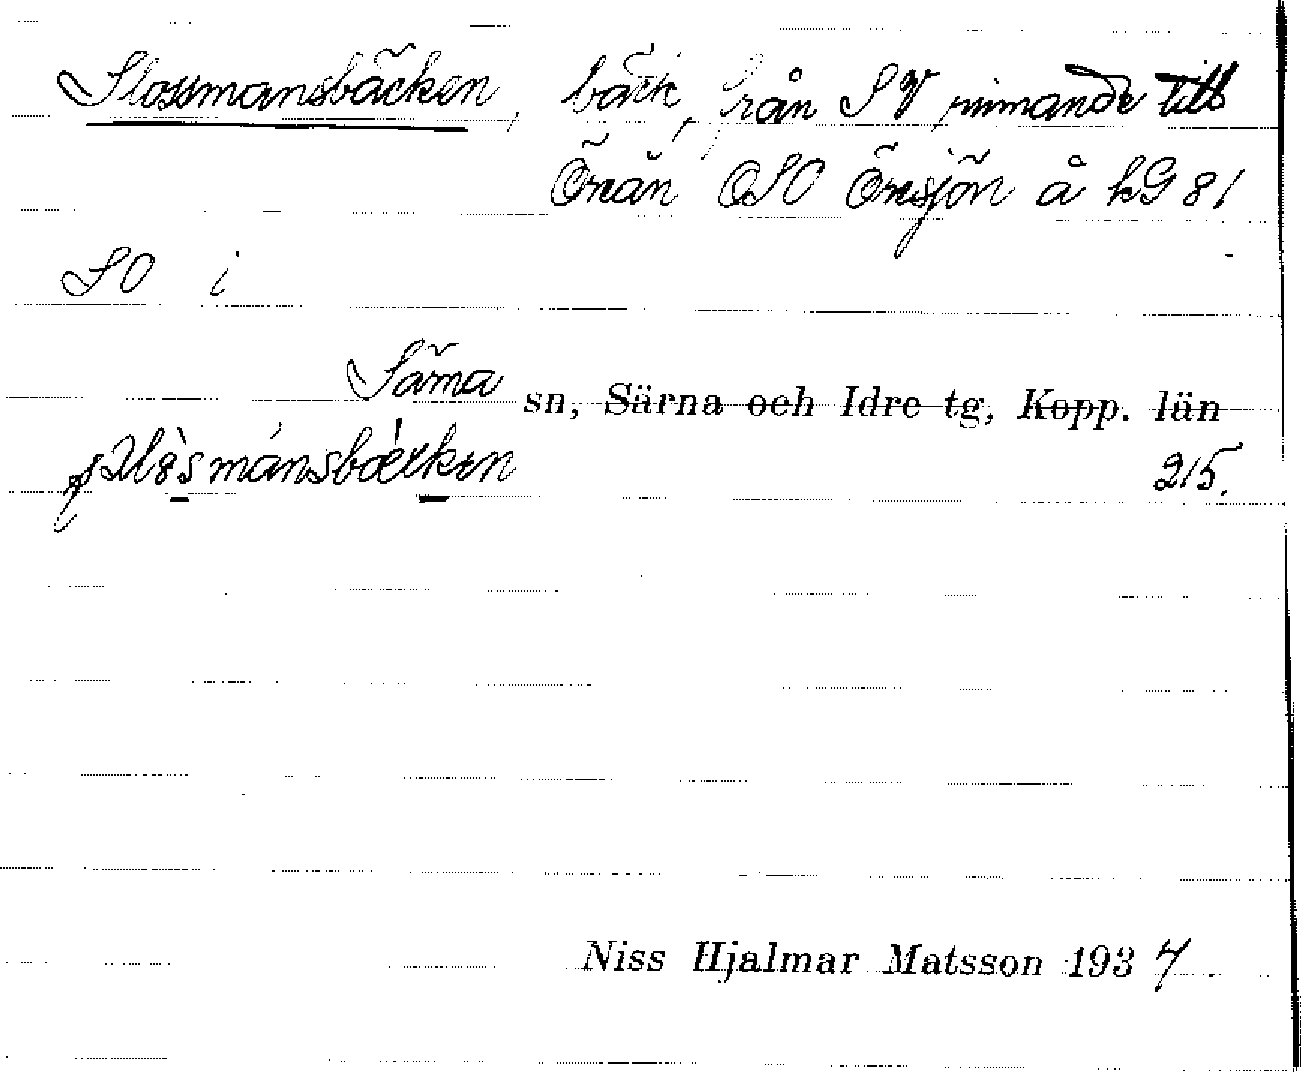 Slossmansbäcken, bäck, från SV rinnande till
Örån OSO Öresjön å kG 81
SO i
Särna sn, Särna och Idre tg, Kopp. län
215.
Niss Hjalmar Matsson 1937